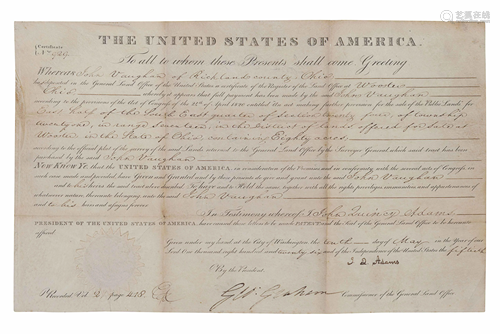 Certificate
No. 929
THE UNITED STATES OF AMERICA.
To all to whom these Presents shall come Greeting
Whereas John Vaughan of Richland county Ohio
deposited in the General Land Office of the United States a certificate of the Register of the Land Office at Wooster
Ohio whereby it appears that full payment has been made by the said John Vaughan
according to the provisions of the Act of Congress of the 24th of April 1820 entitled An act making further provision for the sale of the Public Lands for
East half of the South East quarter of Section twenty four, of township
in range Seventeen in the district of lands offered for Sale at
Wooster in the State of Ohio containing Eighty acres
according to the official plat of the survey of the said Lands returned to the General Land Office by the Surveyor General which said tract has been
purchased by the said John Vaughan
NOW KNOW YE, that the UNITED STATES OF AMERICA, in consideration of the Premises and in conformity with the several acts of Congress in
such case made and provided have Given and Granted and by these presents do give and grant unto the said John Vaughan
and to his heirs the said tract above described. To have and to Hold the same together with all the rights privileges immunities and appurtenances of
whatsoever nature thereunto belonging unto the said John Vaughan
and to his heirs and assigns forever
In Testimony whereof I John Quincy Adams
PRESIDENT OF THE UNITED STATES OF AMERICA, have caused these Letters to be made PATENT and the Seal of the General Land Office to be hereunto
affixed.
Given under my hand at the City of Washington the tenth day of May in the Year of our
Lord One thousand eight hundred and twenty six and of the Independence of the United States the fiftieth
J. Q. Adams
By the President
Recorded Vol. 2, page 418.
Geo. Graham Commissioner of the General Land Office